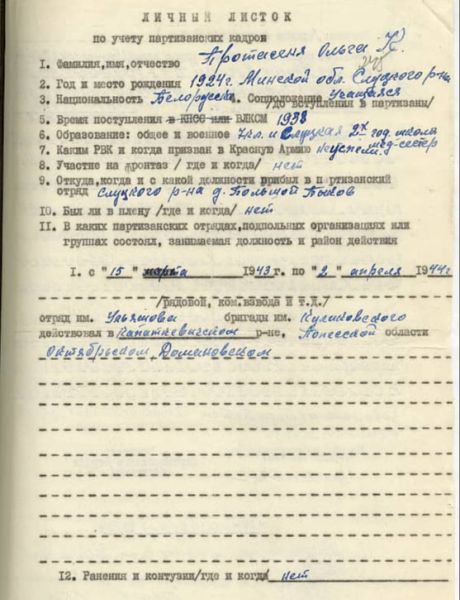 ЛИЧНЫЙ ЛИСТОК
по учету партизанских кадров
1. Фамилия,имя,отчество Протасеня Ольга К.
2. Год и место рождения 1924г. Минской обл. Слуцкого р-на
3. Национальность Белорусска 4. Соцположение Учащаяся
/до вступления в партизаны/
5. Время поступления в КПСС или ВЛКСМ 1938
6. Образование: общее и военное 7 кл. и Слуцкая 2х год. школа мед-сестер
7. Каким РВК и когда призван в Красную Армию
8. Участие на фронтах / где и когда/ нет
9. Откуда,когда и с какой должности прибыл в партизанский
отряд Слуцкого р-на д. Большой Быков
10. Был ли в плену /где и когда/ нет
II. В каких партизанских отрядах,подпольных организациях или
группах состоял, занимаемая должность и район действия
I. с "15" марта 1943 г. по "2" апреля 1944г
/рядовой, ком.взвода и т.д./
отряд им. Ульянова бригады им. Куликовского
действовал в Капаткевичском р-не, Полесской области
Октябрьском Домановском
12. Ранения и контузии/где и когда/ нет